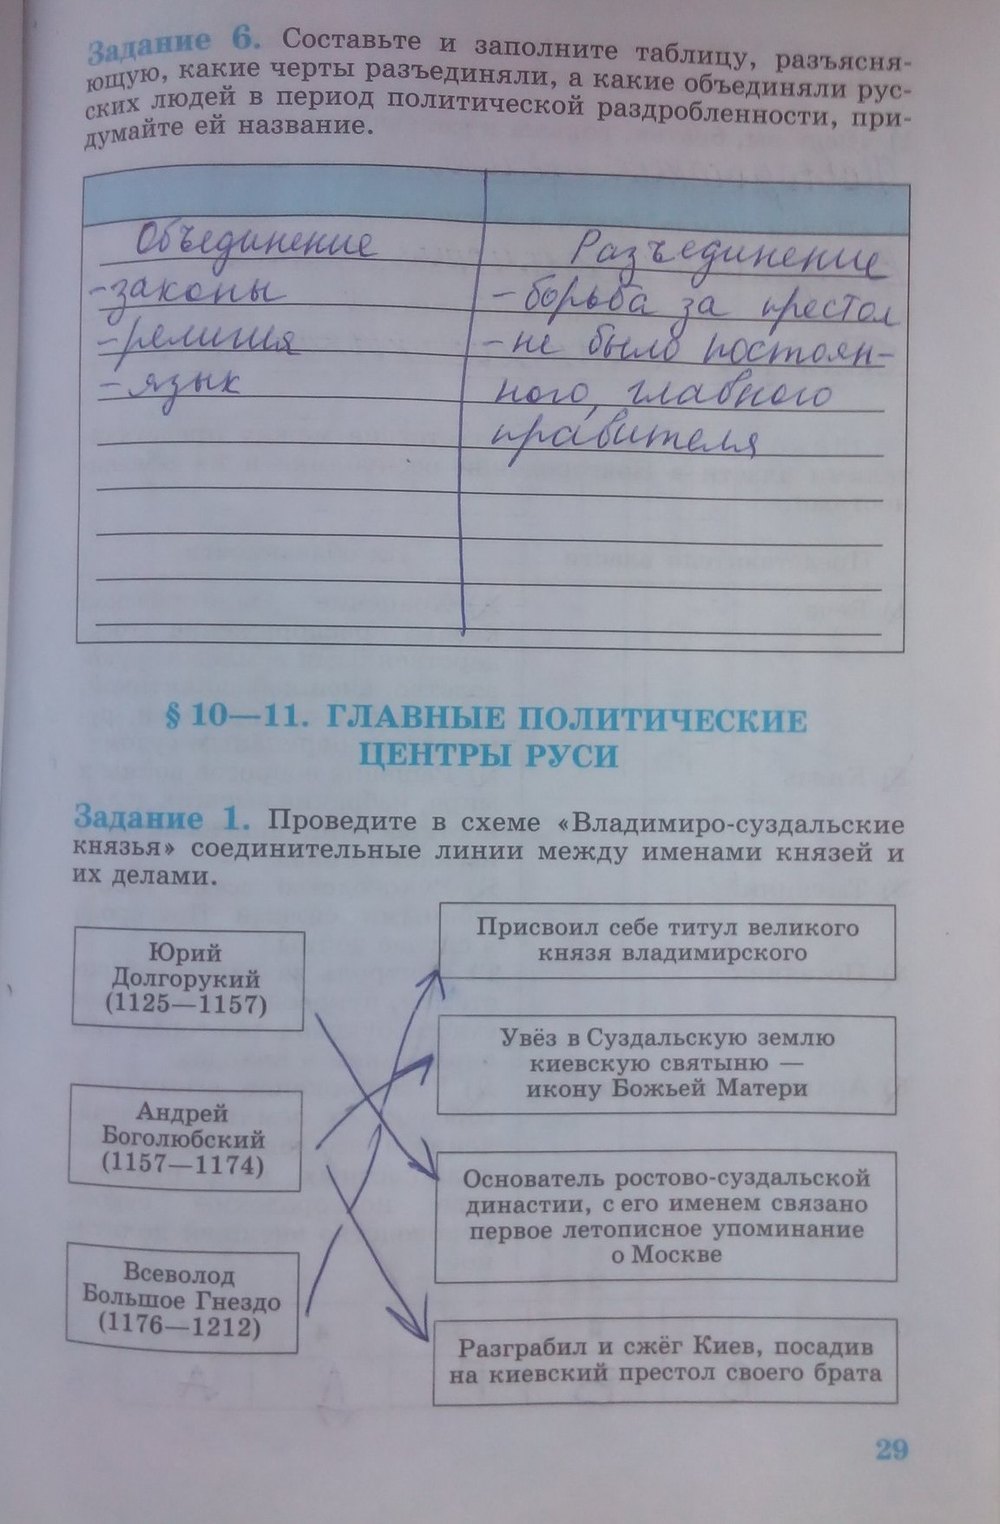 Задание 6. Составьте и заполните таблицу, разъясня-
ющую, какие черты разъединяли, а какие объединяли рус-
ских людей в период политической раздробленности, при-
думайте ей название.
Объединение
Разъединение
-законы
-религия
-язык
-борьба за престол
-не было постоян-
ного, главного
правителя
§ 10—11. ГЛАВНЫЕ ПОЛИТИЧЕСКИЕ
ЦЕНТРЫ РУСИ
Задание 1. Проведите в схеме «Владимиро-суздальские
князья» соединительные линии между именами князей и
их делами.
Юрий
Долгорукий
(1125—1157)
Андрей
Боголюбский
(1157—1174)
Всеволод
Большое Гнездо
(1176—1212)
Присвоил себе титул великого
князя владимирского
Увёз в Суздальскую землю
киевскую святыню —
икону Божьей Матери
Основатель ростово-суздальской
династии, с его именем связано
первое летописное упоминание
о Москве
Разграбил и сжёг Киев, посадив
на киевский престол своего брата
29